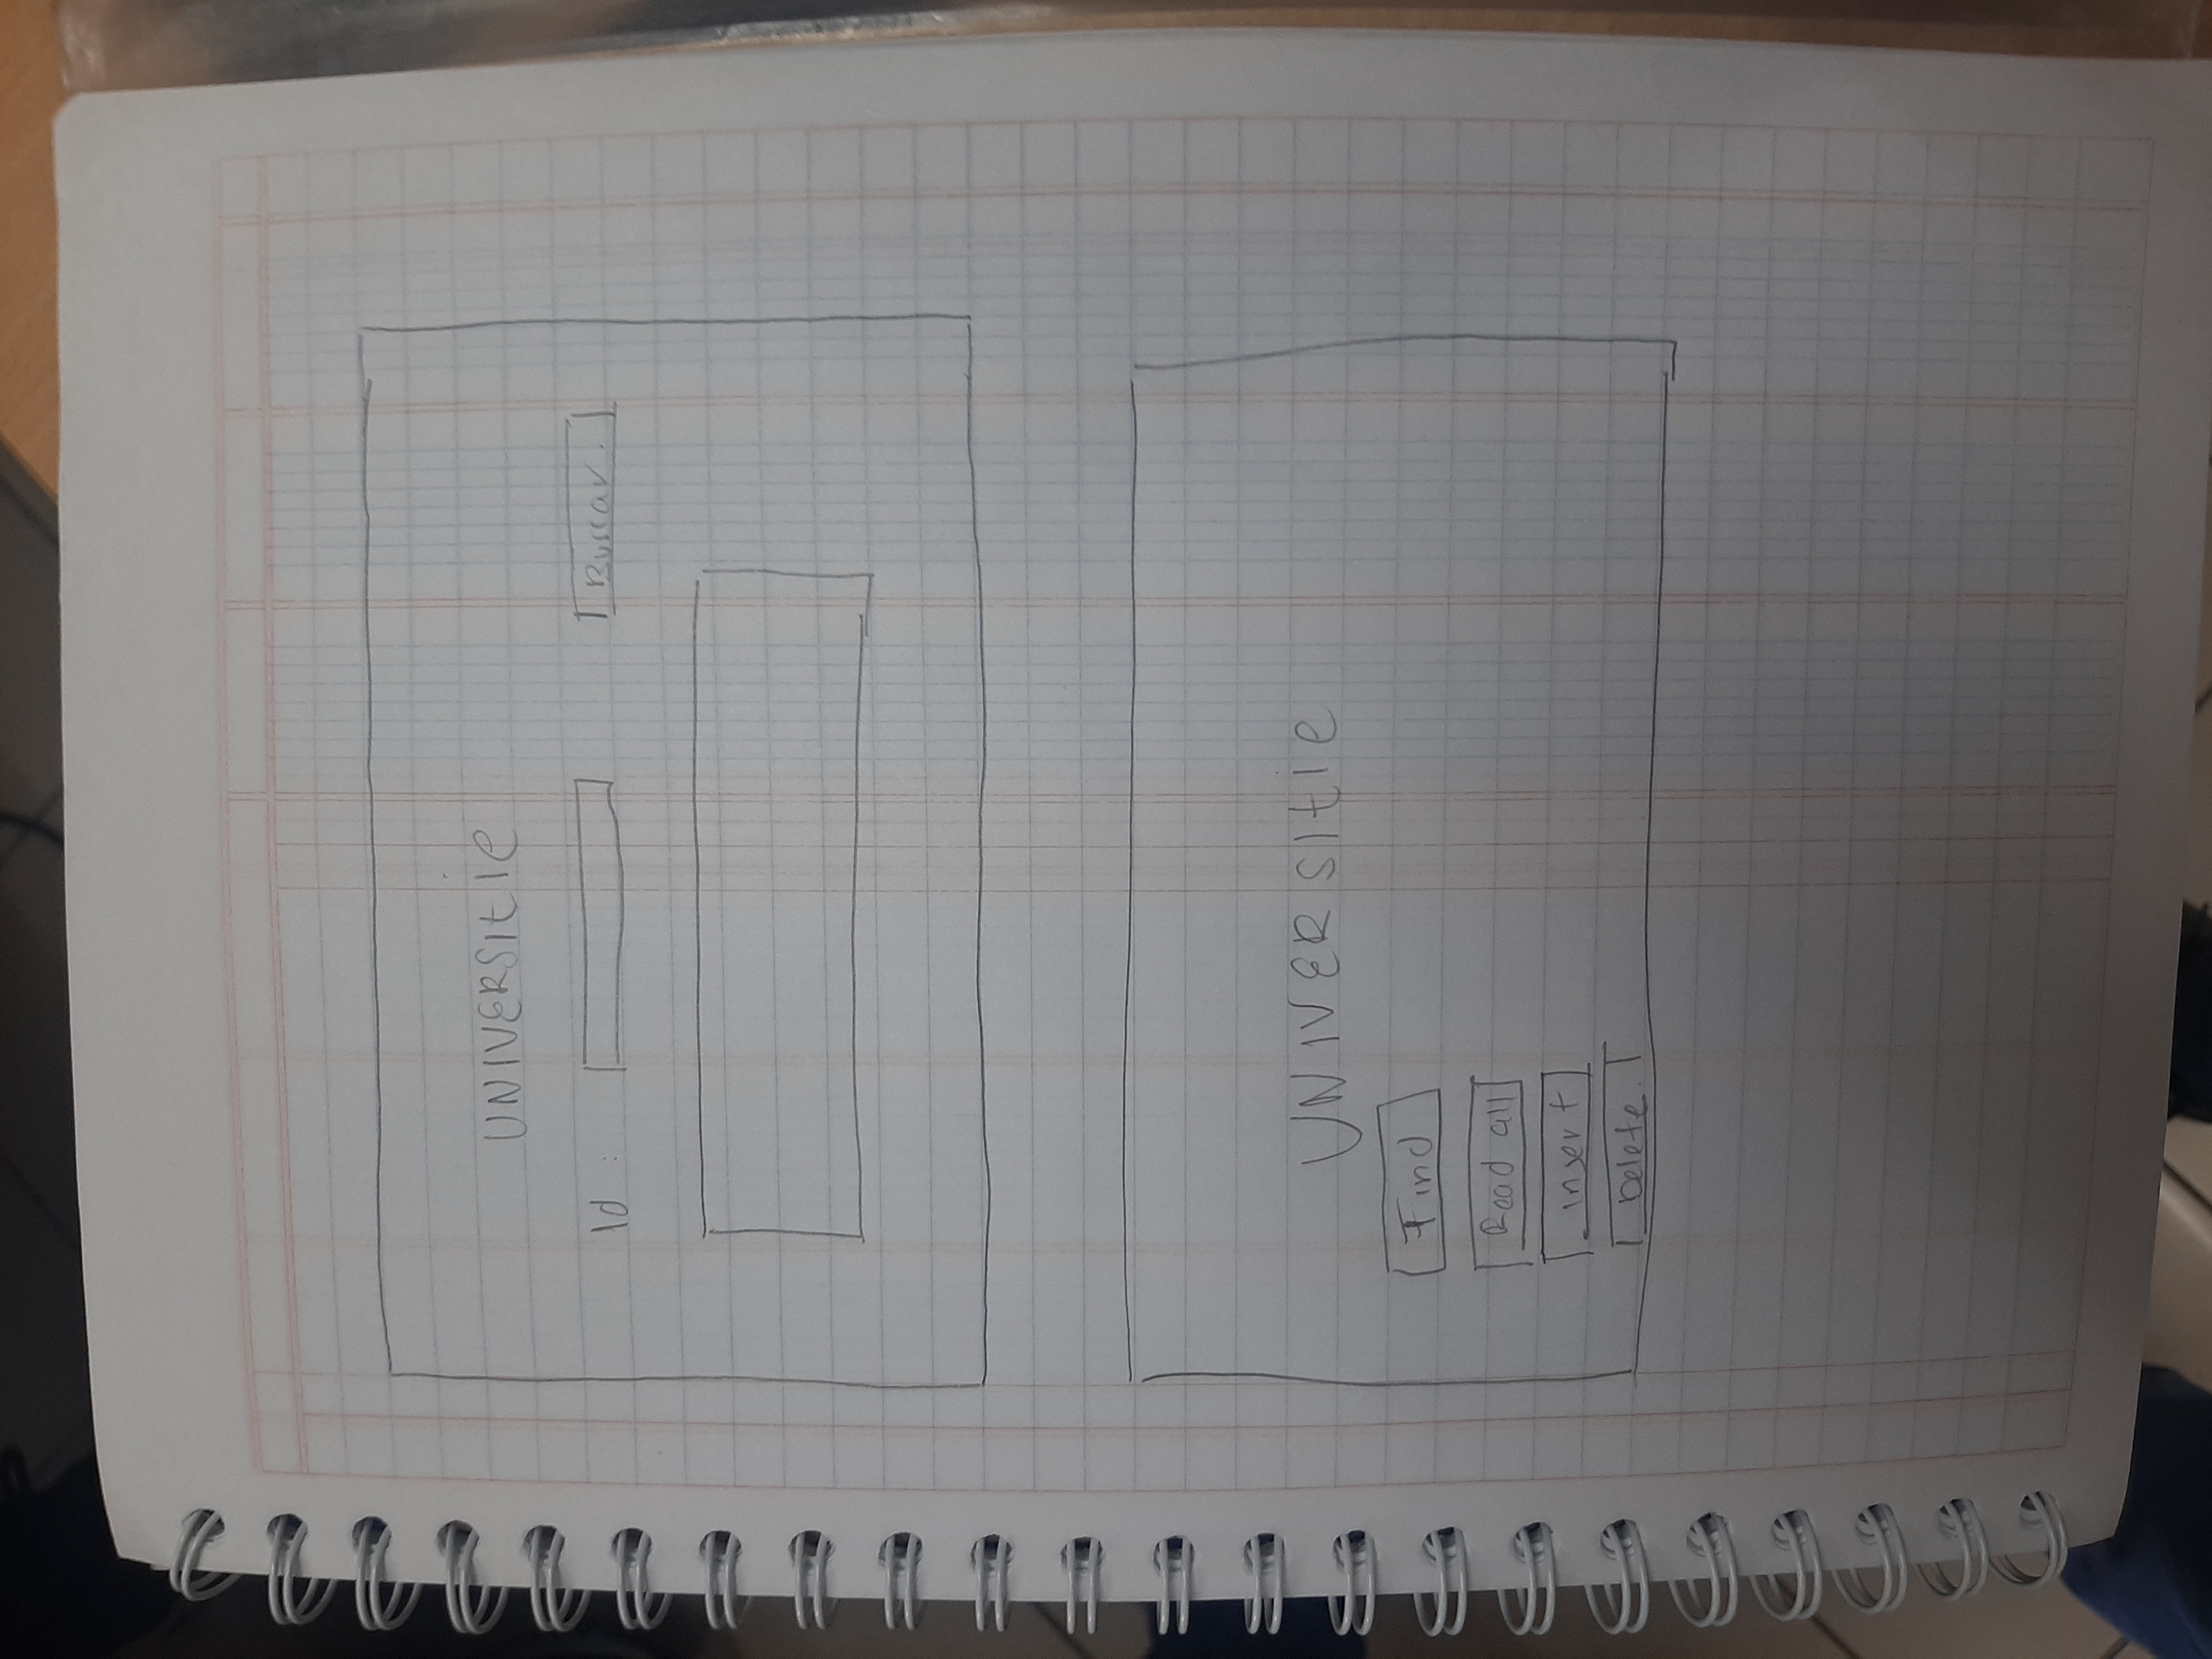 UNIVERSITIE
Id : Buscar.
UNIVERSITIE
Find
Read all
insert
Delete.